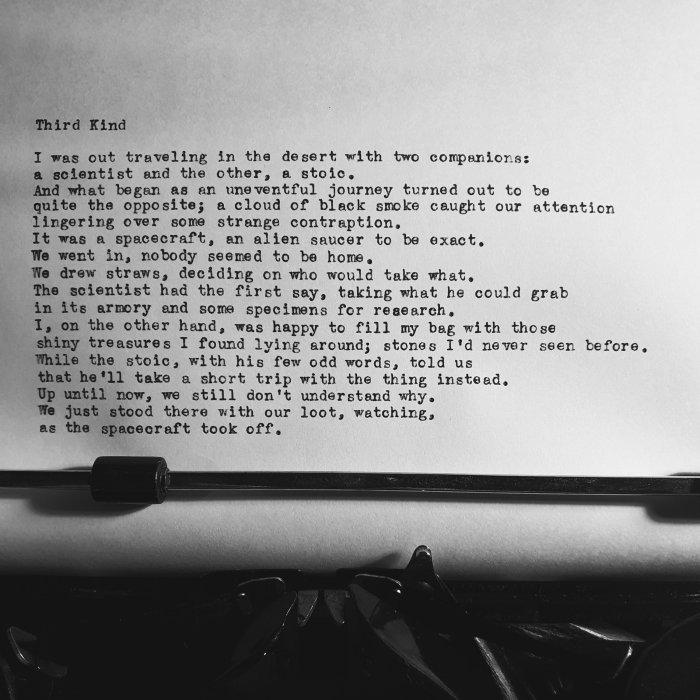 Third Kind
I was out traveling in the desert with two companions:
a scientist and the other, a stoic.
And what began as an uneventful journey turned out to be
quite the opposite; a cloud of black smoke caught our attention
lingering over some strange contraption.
It was a spacecraft, an alien saucer to be exact.
We went in, nobody seemed to be home.
We drew straws, deciding on who would take what.
The scientist had the first say, taking what he could grab
in its armory and some specimens for research.
I, on the other hand, was happy to fill my bag with those
shiny treasures I found lying around; stones I'd never seen before.
While the stoic, with his few odd words, told us
that he'll take a short trip with the thing instead.
Up until now, we still don't understand why.
We just stood there with our loot, watching,
as the spacecraft took off.